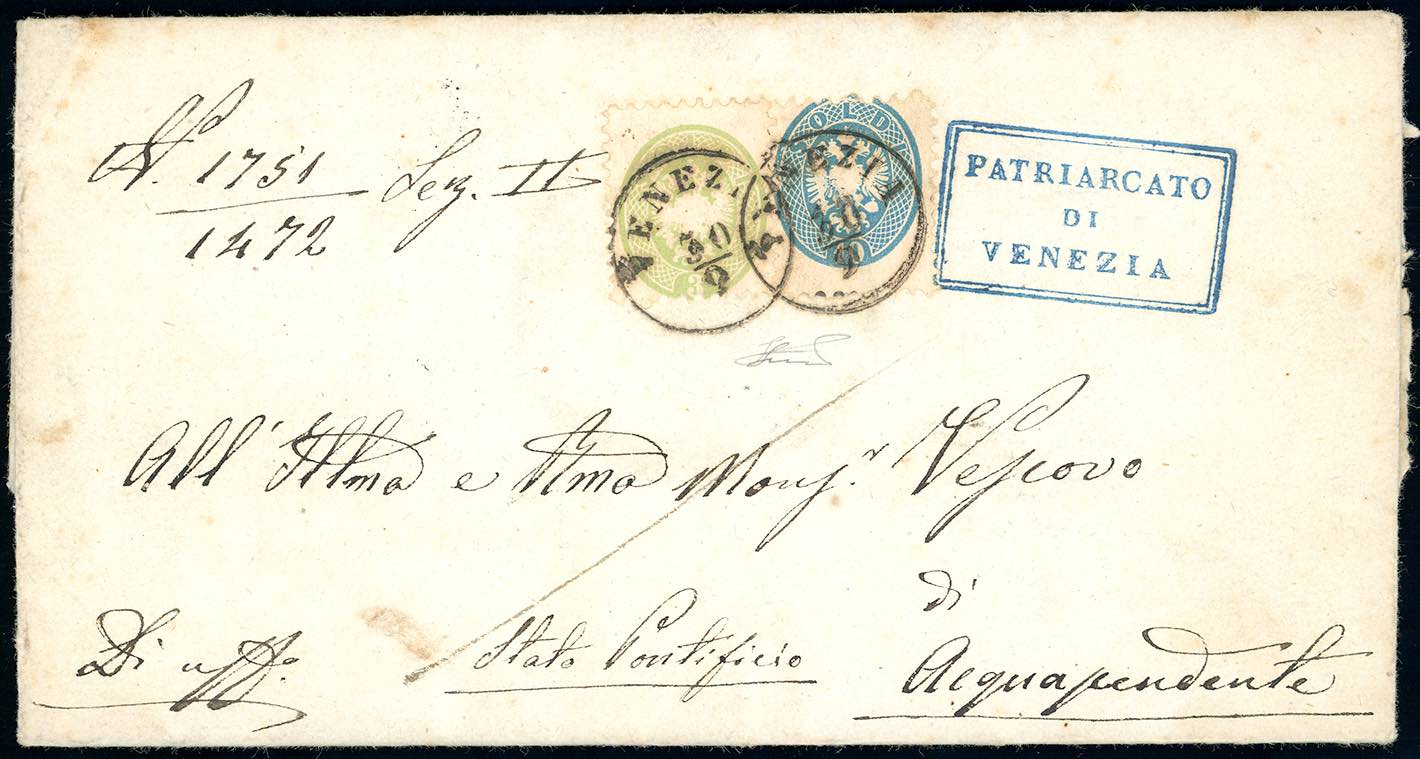 N. 1751 Sez. II
1472
SOLDI
3
10
VENEZIA
30
9
VENEZIA
30
9
PATRIARCATO
DI
VENEZIA
All' Illmo e Rmo Monsr. Vescovo
di
Di uffo.
Stato Pontificio
Acquapendente